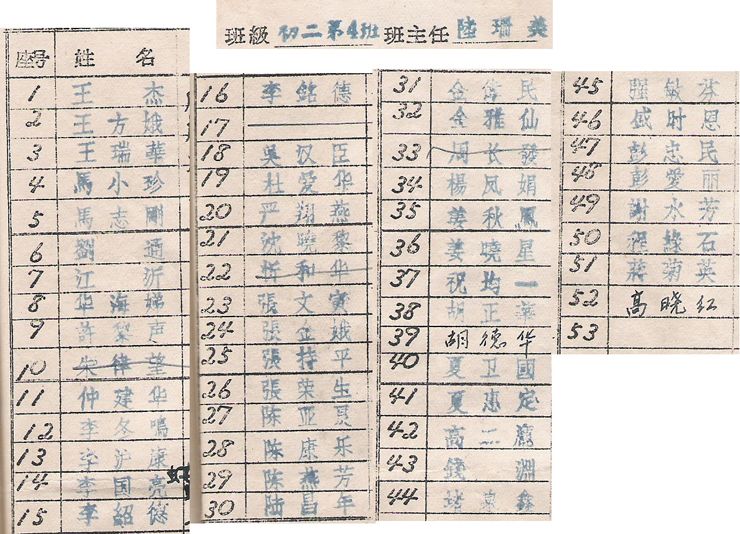 班級 初二第4班 班主任 陸珊美
座号 姓名
1 王杰
2 王方娥
3 王瑞華
4 馬小珍
5 馬志剛
6 劉通
7 江沂
8 华海娣
9 許梨声
10 朱律望
11 仲建华
12 李冬鳴
13 李沪康
14 李国亮
15 李紹德
16 李銘德
17
18 吳汉臣
19 杜爱华
20 严翔燕
21 沈曉黎
22 和华
23 張文寅
24 張孟娥
25 張持平
26 張荣生
27 陈亚
28 陈康乐
29 陈燕芳
30 陆昌年
31 金民
32 金雅仙
33 周长發
34 楊凤娟
35 姜秋鳳
36 姜曉星
37 祝均一
38 胡正華
39 胡德华
40 夏卫國
41 夏惠定
42 高二
43 錢淵
44
45 程敏芬
46 盛时恩
47 彭忠民
48 彭愛丽
49 謝水芳
50 程綠石
51 蔣菊英
52 高晓红
53